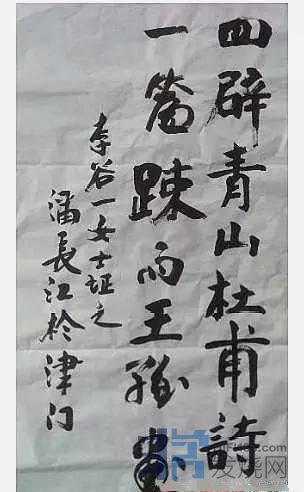 四辟青山杜甫詩
一窗踈雨王維畫
李谷一女士证之
潘長江於津门
发烧网